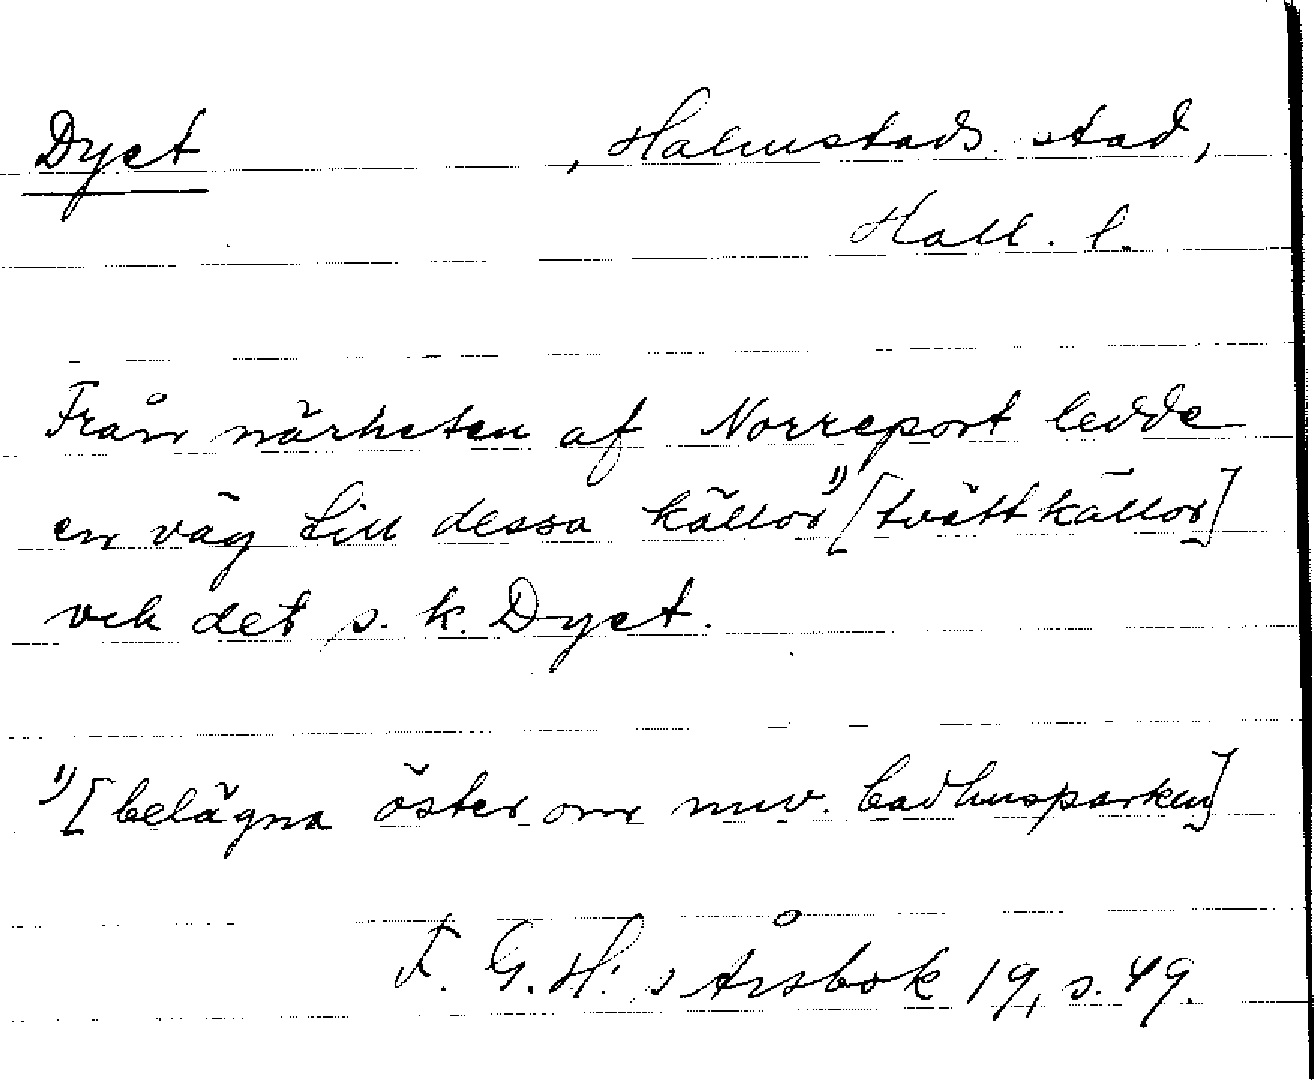 Dyet , Halmstads stad,
Hall. l.
Från närheten af Norreport ledde
en väg till dessa källor ¹) [tvättkällor]
och det s. k. Dyet.
¹) [belägna öster om nuv. badhusparken]
F. G. H:s Årsbok 19, s. 49.